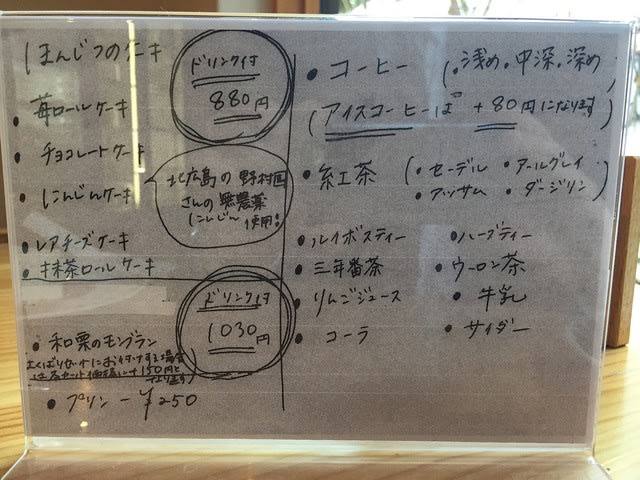 ほんじつのケーキ
ドリンク付
880円
苺ロールケーキ
チョコレートケーキ
にんじんケーキ
北広島の野村園
さんの無農薬
にんじん
使用!
レアチーズケーキ
抹茶ロールケーキ
ドリンク付
1030円
和栗のモンブラン
よくばりせっとにお付けする場合
は 150円と
なります)
プリン ー ¥250
コーヒー (・浅め・中深・深め
(アイスコーヒーは +80円になります)
紅茶 (・セーデル ・アールグレイ
・アッサム ・ダージリン)
ルイボスティー
ハーブティー
三年番茶
ウーロン茶
りんごジュース
牛乳
コーラ
サイダー